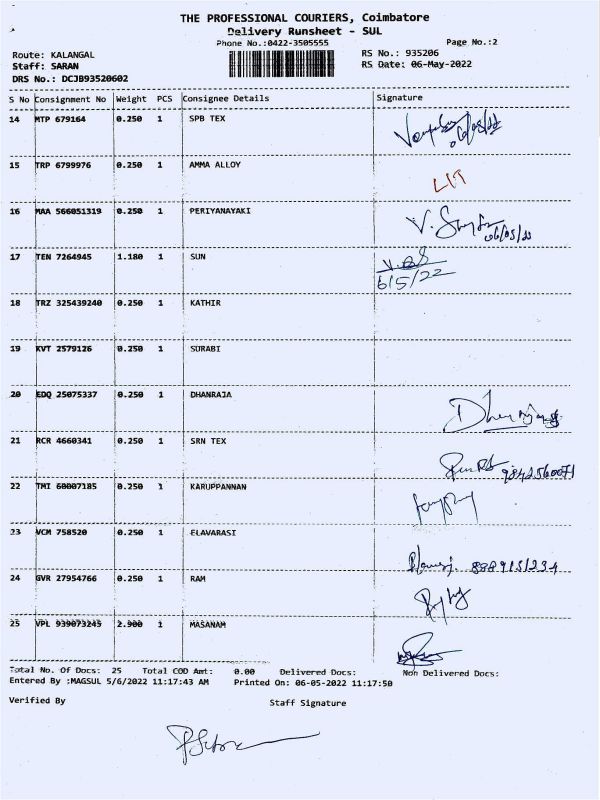 THE PROFESSIONAL COURIERS, Coimbatore
Delivery Runsheet - SUL
Phone No.:0422-3505555
Page No.:2
Route: KALANGAL
RS No.: 935206
Staff: SARAN
RS Date: 06-May-2022
DRS No.: DCJB93520602
S No Consignment No Weight PCS Consignee Details Signature
14 MTP 679164 0.250 1 SPB TEX
06/05/22
15 TRP 6799976 0.250 1 AMMA ALLOY
LIT
16 MAA 566051319 0.250 1 PERIYANAYAKI
V.
06/05/22
17 TEN 7264945 1.180 1 SUN
6/5/22
18 TRZ 325439240 0.250 1 KATHIR
19 KVT 2579126 0.250 1 SURABI
20 EDQ 25075337 0.250 1 DHANRAJA
21 RCR 4660341 0.250 1 SRN TEX
22 TMI 60007185 0.250 1 KARUPPANNAN
23 VCM 758520 0.250 1 ELAVARASI
24 GVR 27954766 0.250 1 RAM
25 VPL 939073245 2.900 1 MASANAM
Total No. Of Docs: 25 Total COD Amt: 0.00 Delivered Docs: Non Delivered Docs:
Entered By :MAGSUL 5/6/2022 11:17:43 AM Printed On: 06-05-2022 11:17:50
Verified By Staff Signature